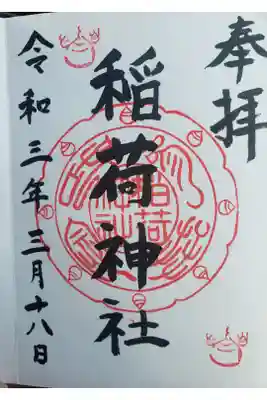 奉拝
稲荷神社
令和三年三月十八日